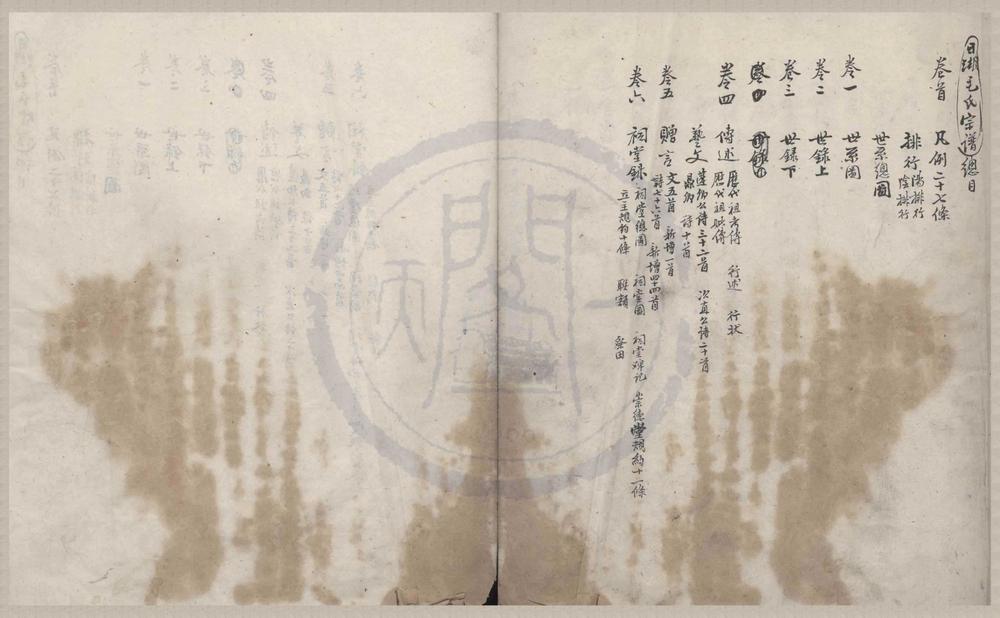 日湖毛氏宗譜總目
卷首 凡例二十七條
排行 陽排行 陰排行
世系總圖
卷一 世系圖
卷二 世錄上
卷三 世錄下
卷四 傳述 歷代祖考傳 行述 行狀
歷代祖妣傳
藝文 蓬仙公詩三十二首 次真公詩二十首
詩十首
卷五 贈言 文五首 新增一首
詩七十六首 新增四十四首
卷六 祠堂錄 祠堂總圖 祠堂圖 祠堂碑記 崇德堂規約十一條
立主規約十條 聯額 祭田